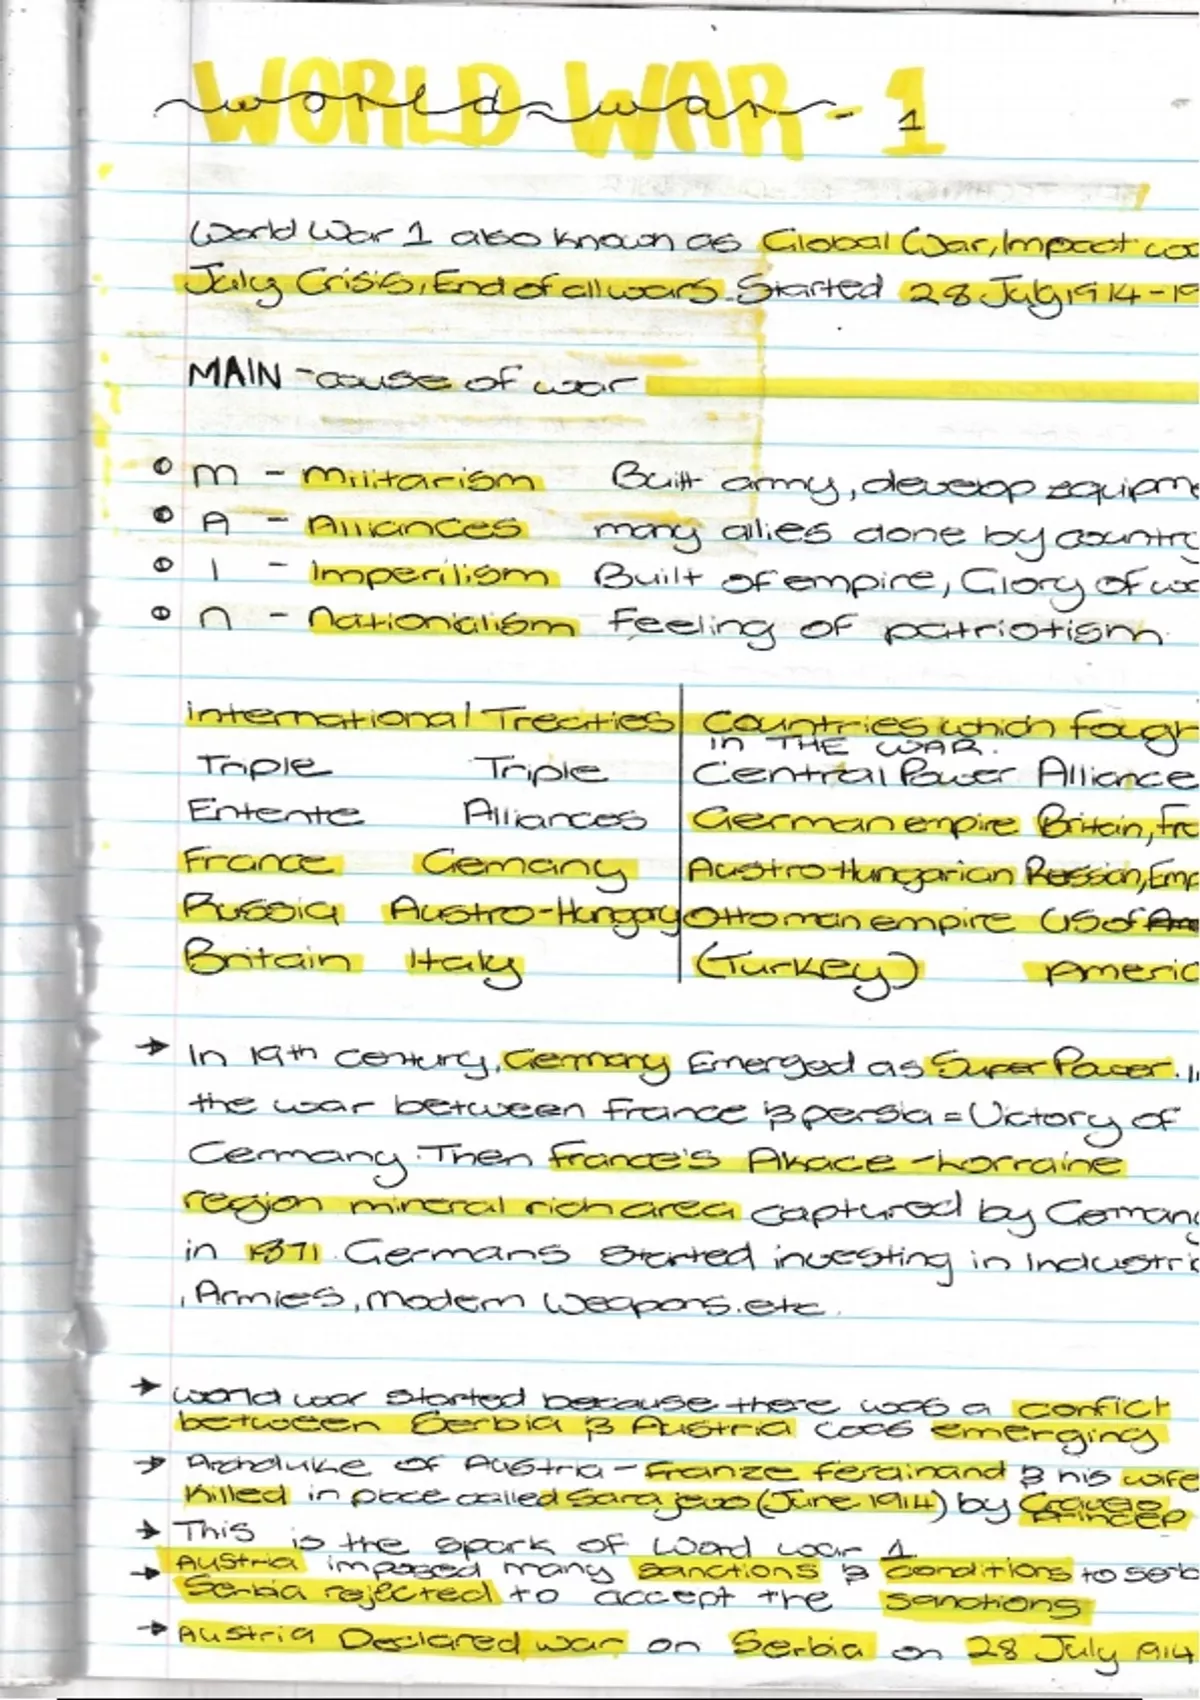 WORLD WAR - 1
world war - 1
World War 1 also known as Global War, Impact
July Crisis, End of all wars. Started 28 July 1914 - 19
MAIN - cause of war
M - Militarism Built army, develop equipm
A - Alliances many allies done by country
I - Imperilism Built of empire, Glory of
N - Nationialism Feeling of patriotism
International Treaties Countries which fough
in THE WAR.
Triple Triple Central Power Alliance
Entente Alliances German empire Britain, Fr
France Gemany Austro-Hungarian Russian, Emp
Russia Austro-Hungary Ottoman empire US of
Britain Italy (Turkey) Americ
→ In 19th century, Germany Emerged as Super Power. I
the war between France & persia = Victory of
Germany. Then France's Alsace - Lorraine
region mineral rich area captured by German
in 1871. Germans started investing in Industri
, Armies, modern weapons. etc.
→ world war started because there was a confict
between Serbia & Austria was emerging
→ Archduke of Austria - Franze Ferdinand & his wife
Killed in place called Sarajevo (June 1914) by
Princep
→ This is the spark of Word war 1
→ Austria imposed many sanctions & conditions to serb
Serbia rejected to accept the sanctions
→ Austria Declared war on Serbia on 28 July 1914